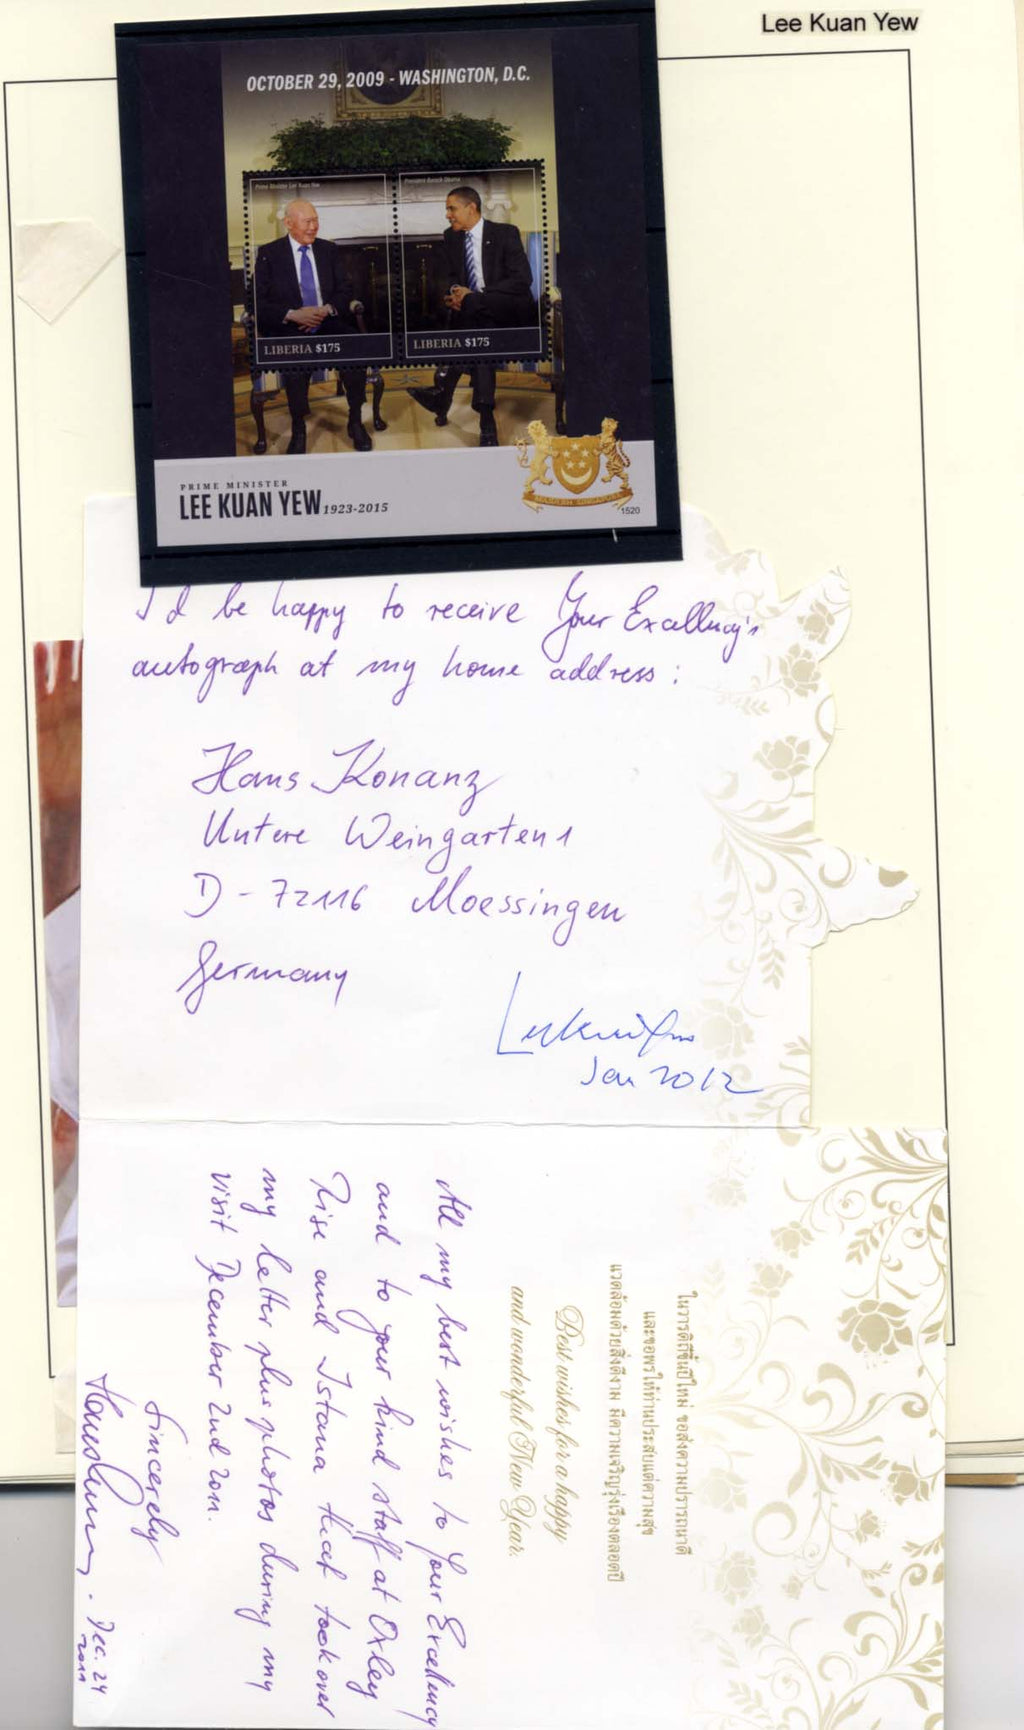 Lee Kuan Yew
OCTOBER 29, 2009 - WASHINGTON, D.C.
Prime Minister Lee Kuan Yew
President Barack Obama
LIBERIA $175
LIBERIA $175
PRIME MINISTER
LEE KUAN YEW 1923-2015
MAJULAH SINGAPURA
1520
I'd be happy to receive Your Excellency's
autograph at my home address:
Hans Konanz
Untere Weingarten 1
D - 72116 Moessingen
Germany
Lee Kuan Yew
Jan 2012
ในวาระดิถีขึ้นปีใหม่ ขอส่งความปรารถนาดี
และขอพรให้ท่านประสบแต่ความสุข
แวดล้อมด้วยสิ่งดีงาม มีความเจริญรุ่งเรืองตลอดปี
Best wishes for a happy
and wonderful New Year.
All my best wishes to Your Excellency
and to your kind staff at Oxley
Rise and Istana that took over
my letter plus photos during my
visit December 2nd 2011.
Sincerely
Dec. 24
2011